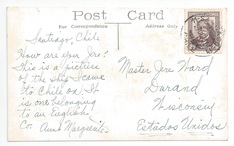 Post Card
For Correspondence
Address Only
Santiago, Chile
How are you Joe?
This is a picture
of the ship I came
to Chile on. It
is one belonging
to an English
Co. Aunt Marguerite
Master Joe Ward
Durand
Wisconsin
Estados Unidos